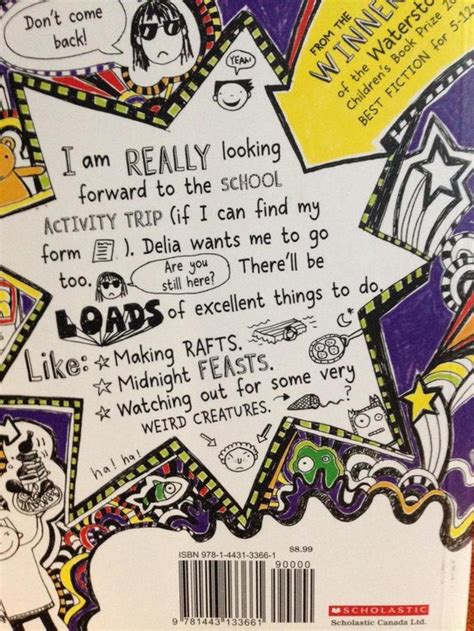 Don't come
back!
FROM THE
WINNER
of the Watersto
Children's Book Prize 20
BEST FICTION for 5-1
(YEAH)
I am REALLY looking
forward to the SCHOOL
ACTIVITY TRIP (if I can find my
form ). Delia wants me to go
too. Are you
still here? There'll be
LOADS of excellent things to do.
Like: ☆ Making RAFTS.
☆ Midnight FEASTS.
☆ Watching out for some very
WEIRD CREATURES. ?
ha! ha!
ISBN 978-1-4431-3366-1
$8.99
90000
9 781443 133661
SCHOLASTIC
Scholastic Canada Ltd.